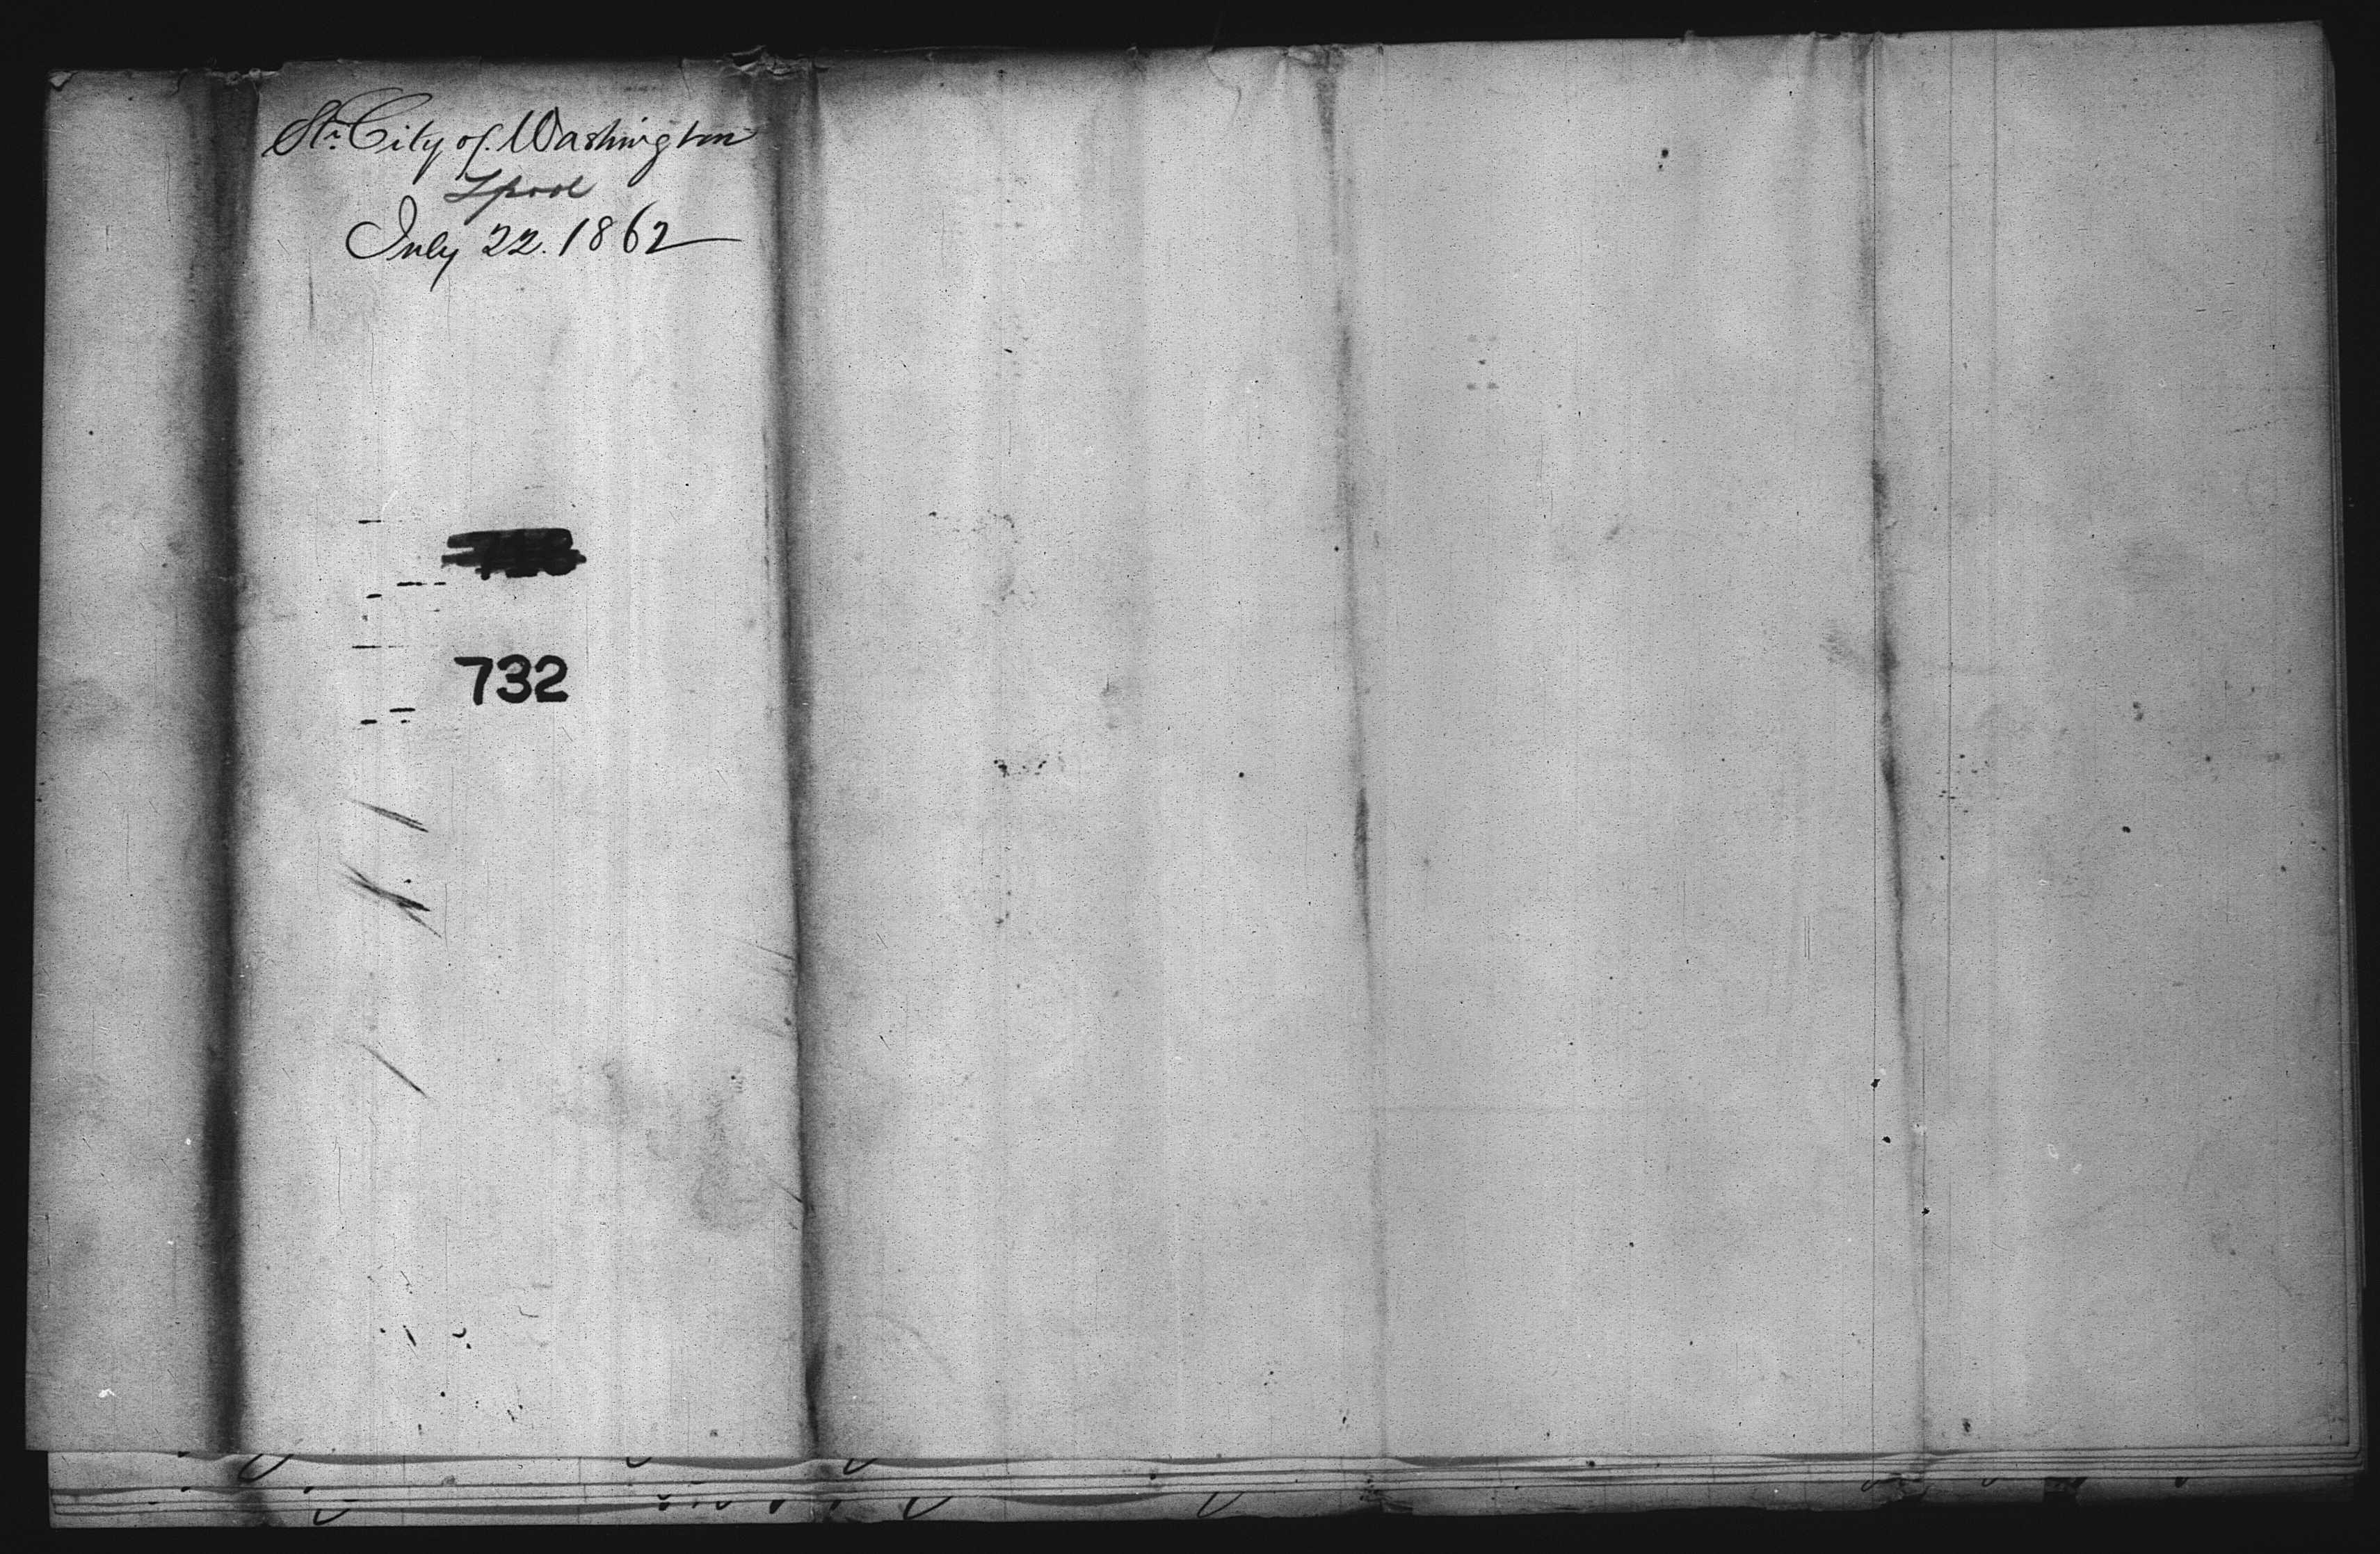 Str. City of Washington
Lpool
July 22. 1862
732